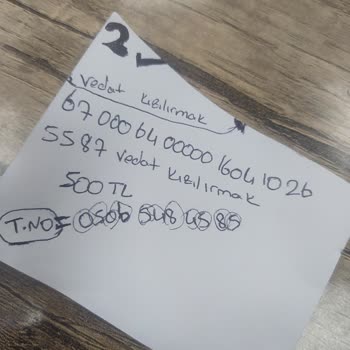 2 ✓
Vedat Kızılırmak
67 0006 4 00000 1604 10 26
5587 Vedat Kızılırmak
500 TL
T.NO= 0506 548 45 85